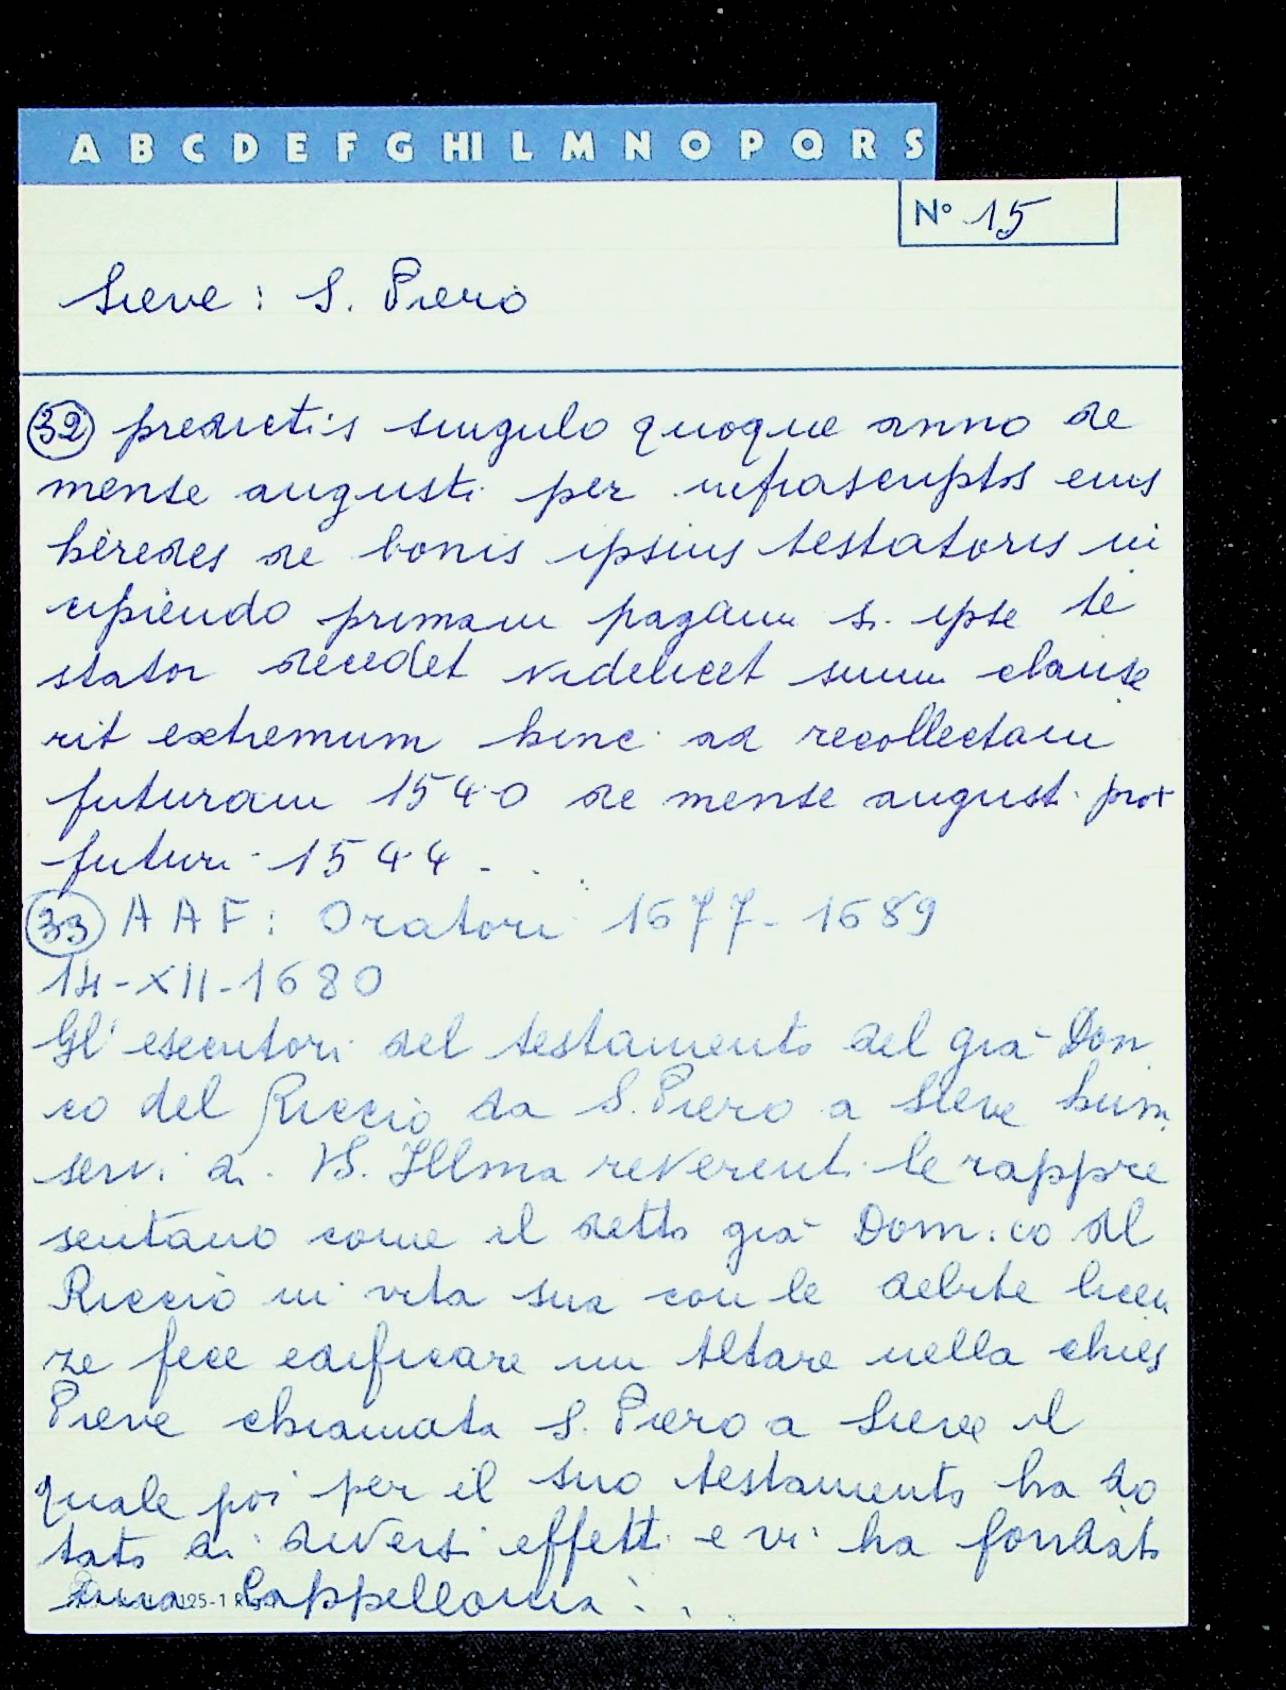 A B C D E F G HI L M N O P Q R S
N° 15
Sieve : S. Piero
32 predictis singulo quoque anno de
mense augusti per infrascriptos eius
heredes de bonis ipsius testatoris in
cipiendo primam pagam si ipse te
stator decedet videlicet suum clause
rit extremum hinc ad recollectam
futuram 1540 de mense augusti prox
futuri 1544 . . .
33 A A F : Oratori 1677 - 1689
14-XII-1680
Gl' esecutori del testamento del già Don
co del Riccio da S. Piero a Sieve hum.
servi di VS. Illma reverenti le rappre
sentano come il detto già Dom.co del
Riccio in vita sua con le debite licen
ze fece edificare un Altare nella chies
Pieve chiamata S. Piero a Sieve il
quale poi per il suo testamento ha do
tato di diversi effetti e vi ha fondato
una Cappellania . . .